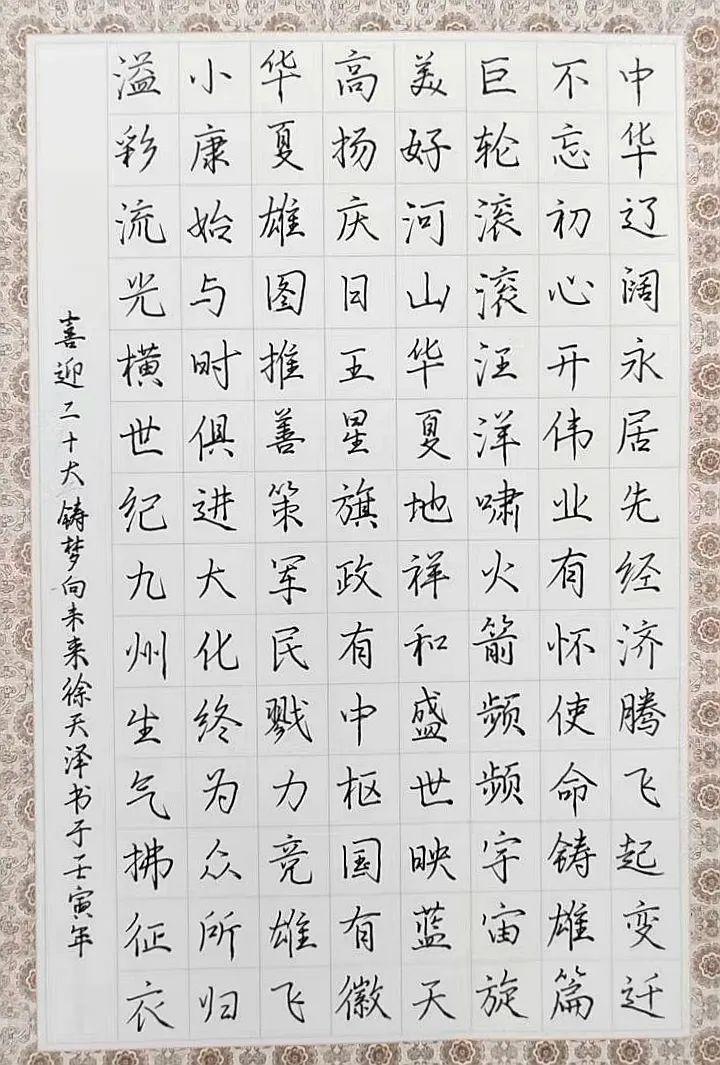 中华辽阔永居先经济腾飞起变迁
不忘初心开伟业有怀使命铸雄篇
巨轮滚滚汪洋啸火箭频频宇宙旋
美好河山华夏地祥和盛世映蓝天
高扬庆日五星旗政有中枢国有徽
华夏雄图推善策军民戮力竞雄飞
小康始与时俱进大化终为众所归
溢彩流光横世纪九州生气拂征衣
喜迎二十大铸梦向未来徐天泽书于壬寅年